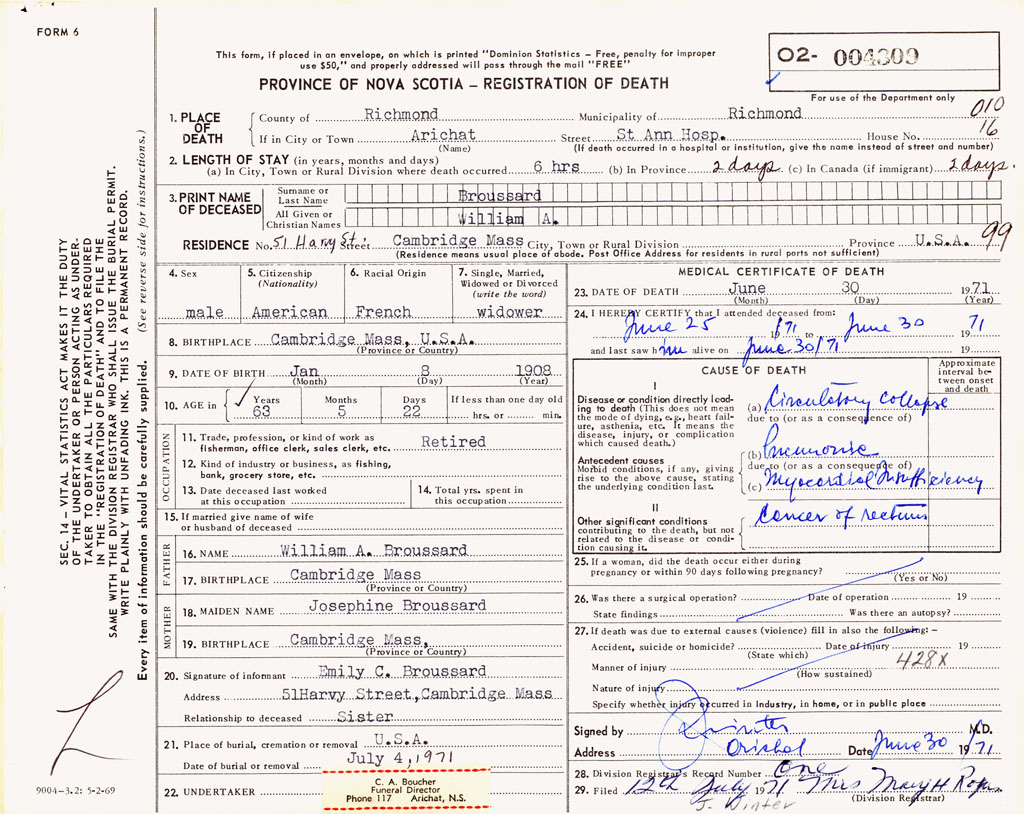 FORM 6
This form, if placed in an envelope, on which is printed "Dominion Statistics – Free, penalty for improper
use $50," and properly addressed will pass through the mail "FREE"
O2- 004309
PROVINCE OF NOVA SCOTIA – REGISTRATION OF DEATH
For use of the Department only
010
16
1. PLACE OF DEATH
County of Richmond Municipality of Richmond
If in City or Town Arichat Street St Ann Hosp. House No.
(Name) (If death occurred in a hospital or institution, give the name instead of street and number)
2. LENGTH OF STAY (in years, months and days)
(a) In City, Town or Rural Division where death occurred 6 hrs (b) In Province 2 days (c) In Canada (if immigrant) 2 days.
3. PRINT NAME OF DECEASED
Surname or Last Name Broussard
All Given or Christian Names William A.
RESIDENCE No. 51 Harvy St. Street Cambridge Mass City, Town or Rural Division Province U.S.A. 99
(Residence means usual place of abode. Post Office Address for residents in rural parts not sufficient)
4. Sex
male
5. Citizenship
(Nationality)
American
6. Racial Origin
French
7. Single, Married,
Widowed or Divorced
(write the word)
widower
8. BIRTHPLACE Cambridge Mass, U.S.A.
(Province or Country)
9. DATE OF BIRTH Jan 8 1908
(Month) (Day) (Year)
10. AGE in Years Months Days If less than one day old
63 5 22 hrs. or min.
OCCUPATION
11. Trade, profession, or kind of work as
fisherman, office clerk, sales clerk, etc. Retired
12. Kind of industry or business, as fishing,
bank, grocery store, etc.
13. Date deceased last worked
at this occupation
14. Total yrs. spent in
this occupation
15. If married give name of wife
or husband of deceased
FATHER
16. NAME William A. Broussard
17. BIRTHPLACE Cambridge Mass
(Province or Country)
MOTHER
18. MAIDEN NAME Josephine Broussard
19. BIRTHPLACE Cambridge Mass,
(Province or Country)
20. Signature of informant Emily C. Broussard
Address 51Harvy Street,Cambridge Mass
Relationship to deceased Sister
21. Place of burial, cremation or removal U.S.A.
Date of burial or removal July 4,1971
22. UNDERTAKER
C. A. Boucher
Funeral Director
Phone 117 Arichat, N.S.
MEDICAL CERTIFICATE OF DEATH
23. DATE OF DEATH June 30 1971
(Month) (Day) (Year)
24. I HEREBY CERTIFY that I attended deceased from:
June 25 19/71 to June 30 1971
and last saw him alive on June 30/71 19
CAUSE OF DEATH
Approximate
interval be-
tween onset
and death
I
Disease or condition directly lead-
ing to death (This does not mean
the mode of dying, e.g., heart fail-
ure, asthenia, etc. It means the
disease, injury, or complication
which caused death.)
(a) Circulatory collapse
due to (or as a consequence of)
Antecedent causes
Morbid conditions, if any, giving
rise to the above cause, stating
the underlying condition last.
(b) Pneumonia
due to (or as a consequence of)
(c) Myocardial Insufficiency
II
Other significant conditions
contributing to the death, but not
related to the disease or condi-
tion causing it.
Cancer of rectum
25. If a woman, did the death occur either during
pregnancy or within 90 days following pregnancy?
(Yes or No)
26. Was there a surgical operation? Date of operation 19
State findings Was there an autopsy?
27. If death was due to external causes (violence) fill in also the following: –
Accident, suicide or homicide? Date of injury 19
(State which)
428X
Manner of injury
(How sustained)
Nature of injury
Specify whether injury occurred in Industry, in home, or in public place
Signed by M.D.
Address Arichat Date June 30 19/71
28. Division Registrar's Record Number One
29. Filed 12th July 1971 Mrs Mary H
(Division Registrar)
J. Winter
SEC. 14 – VITAL STATISTICS ACT MAKES IT THE DUTY
OF THE UNDERTAKER OR PERSON ACTING AS UNDER-
TAKER TO OBTAIN ALL THE PARTICULARS REQUIRED
IN THE "REGISTRATION OF DEATH" AND TO FILE THE
SAME WITH THE DIVISION REGISTRAR WHO SHALL ISSUE THE BURIAL PERMIT.
WRITE PLAINLY WITH UNFADING INK. THIS IS A PERMANENT RECORD.
Every item of information should be carefully supplied. (See reverse side for instructions.)
9004–3.2: 5-2-69